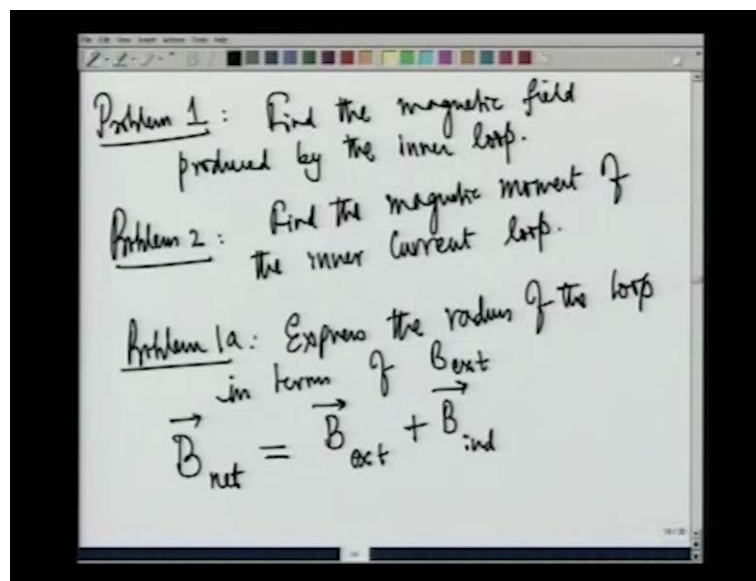 Problem 1 : Find the magnetic field
produced by the inner loop.
Problem 2 : Find the magnetic moment of
the inner Current loop.
Problem 1a : Express the radius of the loop
in terms of Bext
B net = B ext + B ind